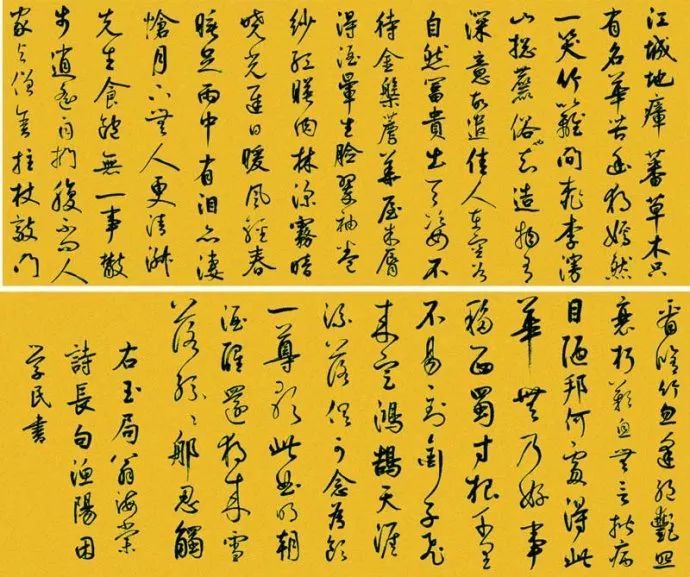 江城地瘴蕃草木只
有名華苦幽獨嫣然
一笑竹籬間桃李漫
山総麤俗也知造物有
深意故遣佳人在空谷
自然富貴出天姿不
待金槃薦華屋朱脣
得酒暈生臉翠袖卷
紗紅暎肉林深霧暗
曉光遲日暖風輕春
睡足雨中有淚亦悽
愴月下無人更清淑
先生食飽無一事散
步逍遙自捫腹不問人
家與僧舍拄杖敲門
看脩竹忽逢絕艷照
衰朽歎息無言揩病
目陋邦何處得此
華無乃好事
移西蜀寸根千里
不易到銜子飛
來定鴻鵠天涯
流落俱可念為飲
一尊歌此曲明朝
酒醒還獨來雪
落紛〻那忍觸
右玉局翁海棠
詩長句漁陽田
學民書